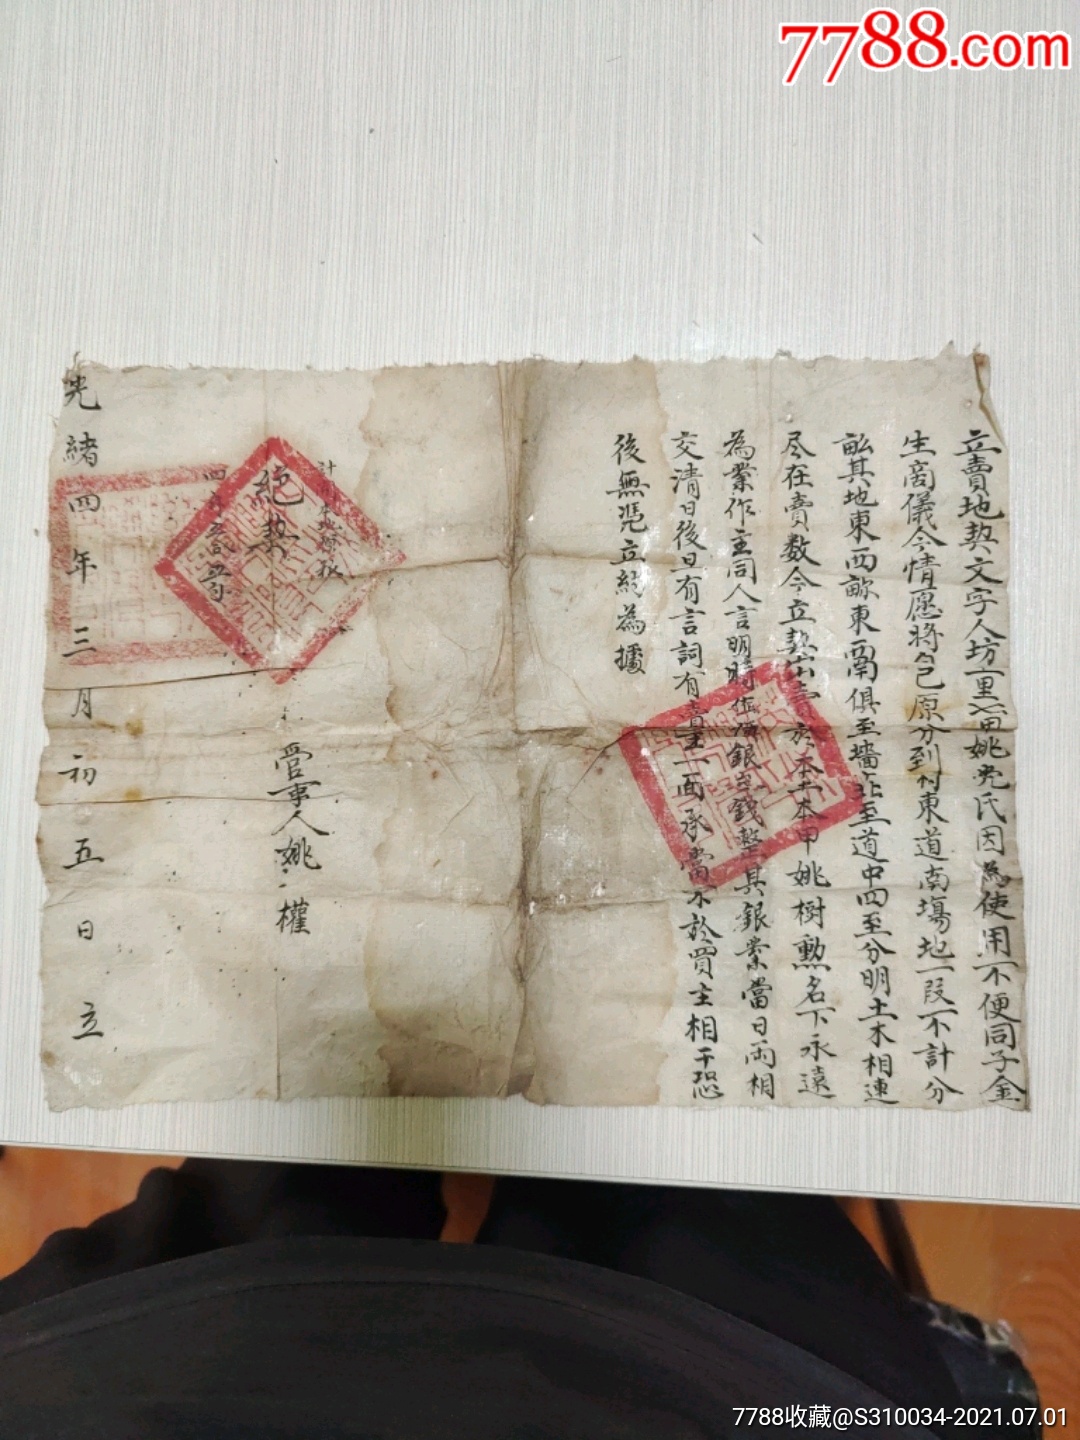 7788.com
立賣地契文字人坊里六甲姚党氏因為使用不便同子金
生商儀今情愿將自己原分到村東道南塲地一段不計分
畝其地東西畛東西南俱至墻北至道中四至分明土木相連
尽在賣数今立契出賣於本里本甲姚樹勲名下永遠
為業作主同人言明時值價銀錢整其銀業當日両相
交清日後旦有言詞有賣主一面承當不於買主相干恐
後無憑立約為據
管事人姚權
計開
絕契
光緒四年三月初五日立
7788收藏@S310034-2021.07.01